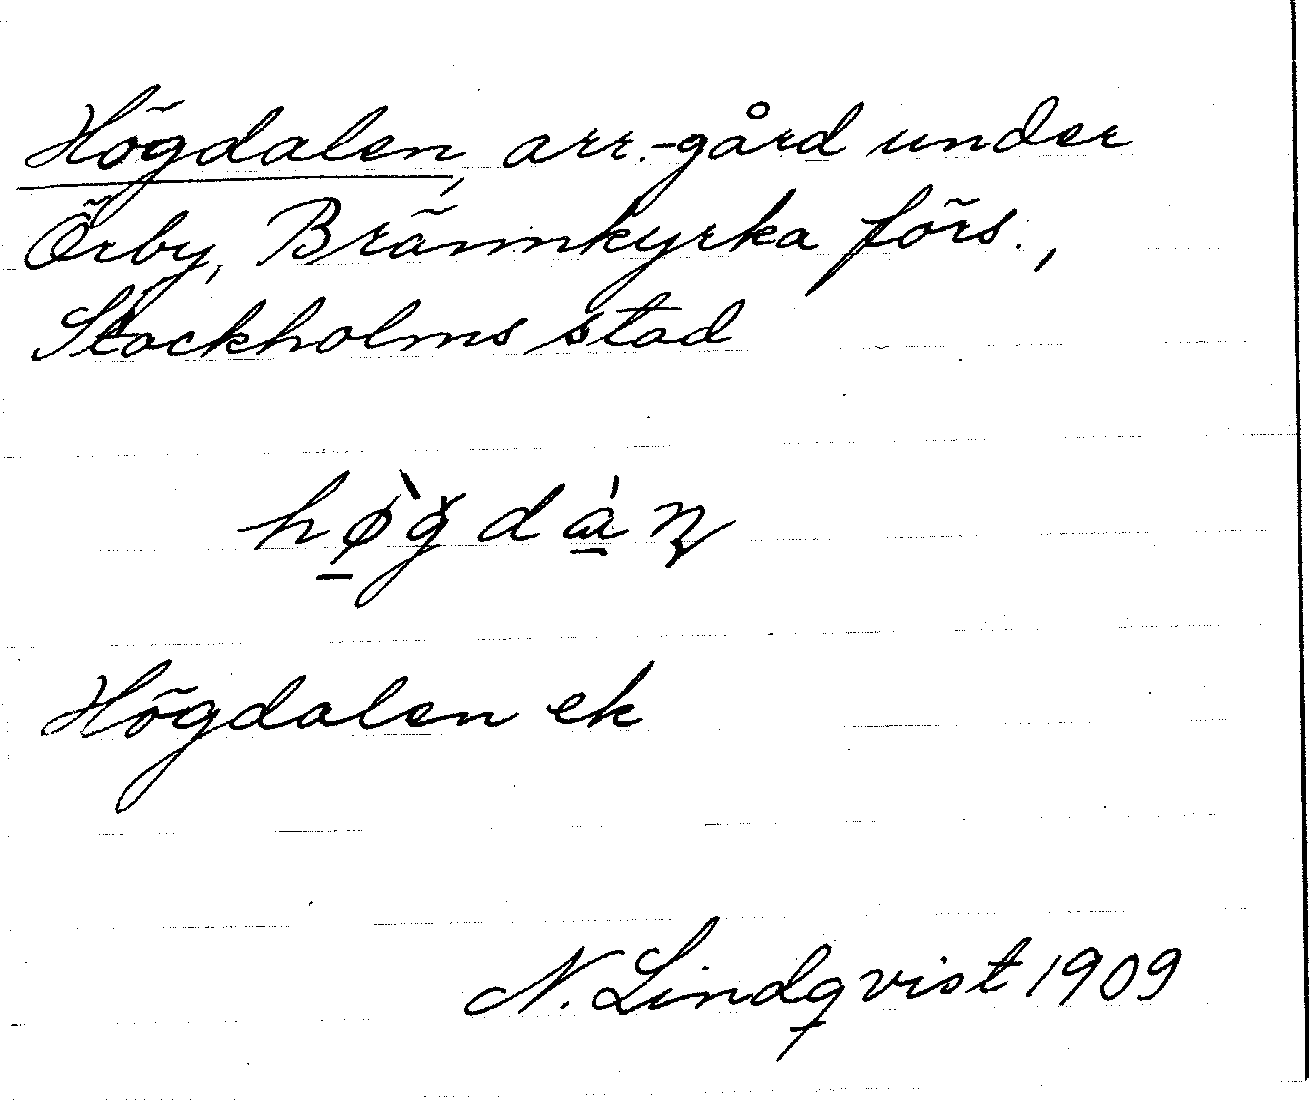 Högdalen, arr.-gård under
Örby, Brännkyrka förs.,
Stockholms stad
hø̠̀g dá̠ n̥
Högdalen ek
N. Lindqvist 1909